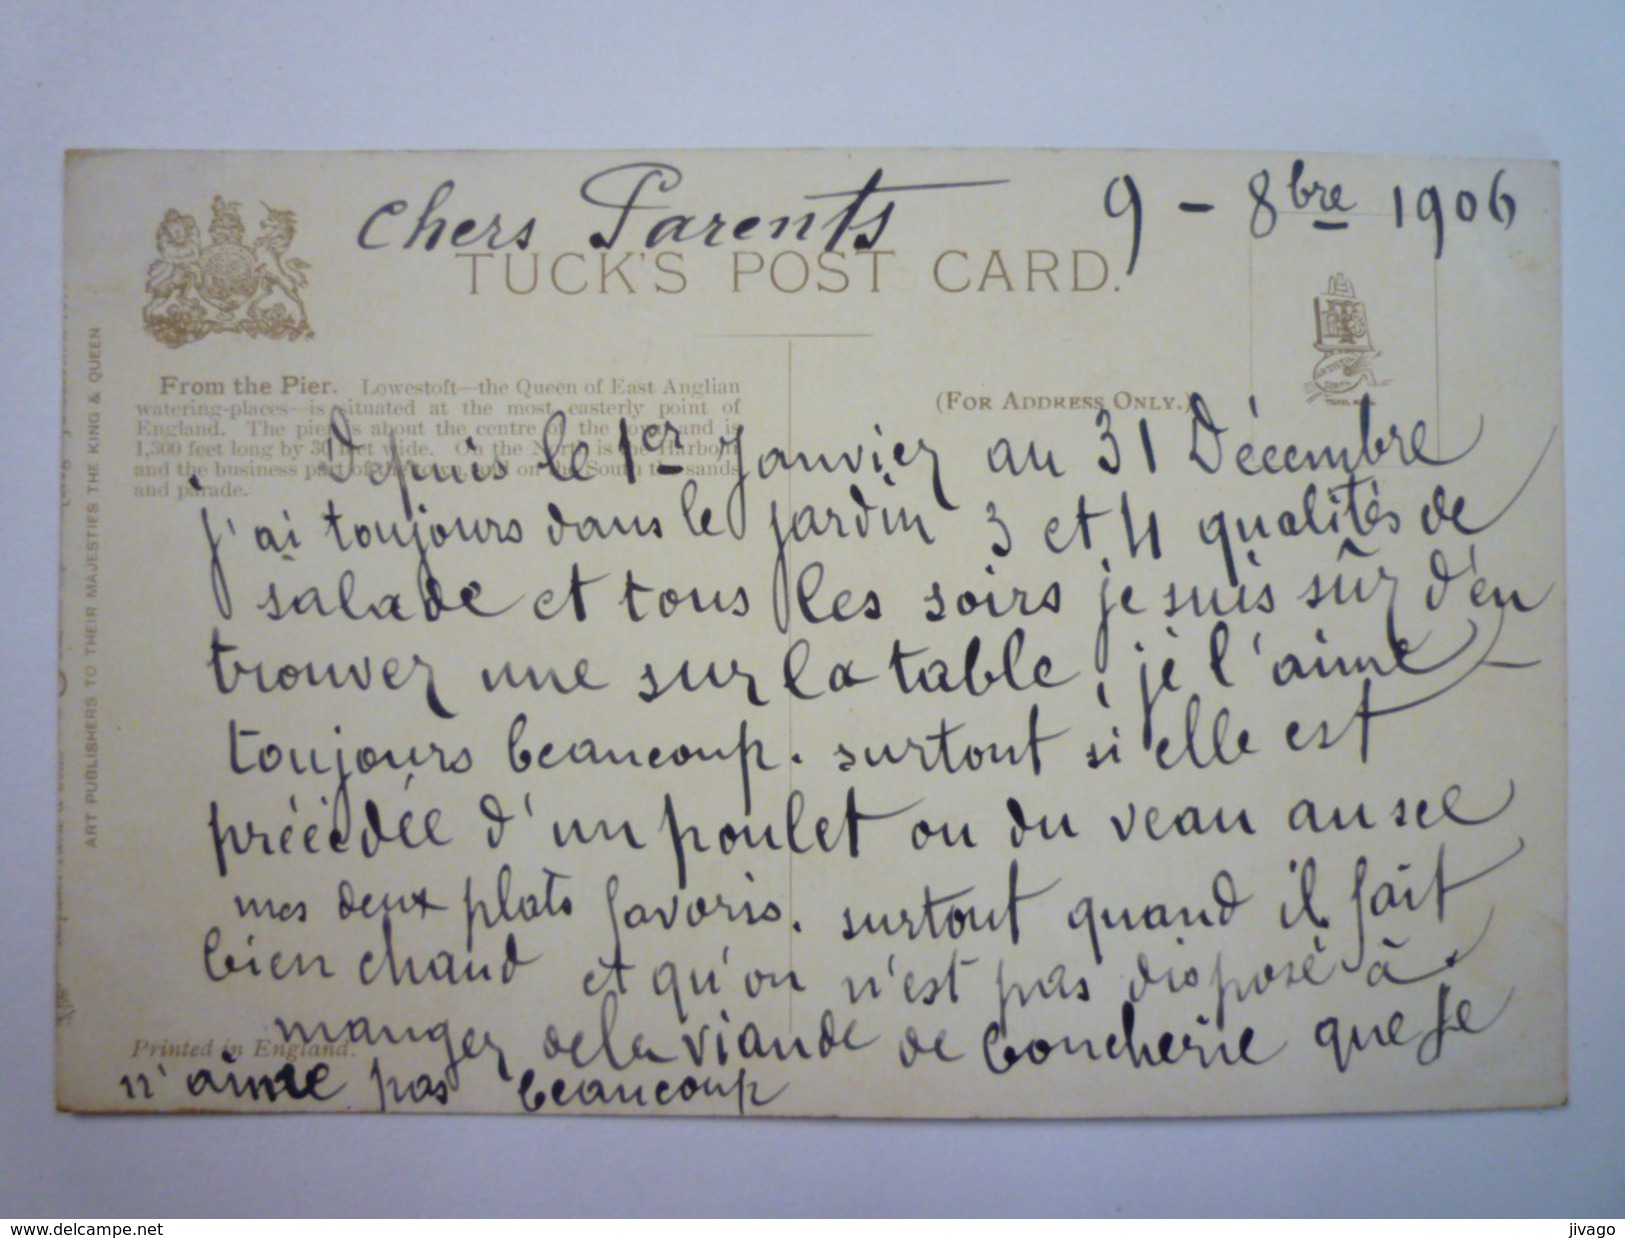 chers Parents 9 - 8bre 1906
TUCK'S POST CARD.
From the Pier. Lowestoft—the Queen of East Anglian
watering-places—is situated at the most easterly point of
England. The pier is about the centre of the town and is
1,300 feet long by 30 feet wide. On the North is the Harbour
and the business part of the town, and on the South the sands
and parade.
(FOR ADDRESS ONLY.)
ART PUBLISHERS TO THEIR MAJESTIES THE KING & QUEEN
Depuis le 1er Janvier au 31 Décembre
j'ai toujours dans le jardin 3 et 4 qualités de
salade et tous les soirs je suis sûr d'en
trouver une sur la table, je l'aime
toujours beaucoup. surtout si elle est
précédée d'un poulet ou du veau
mes deux plats favoris. surtout quand il fait
bien chaud et qu'on n'est pas disposé à
manger de la viande de boucherie que je
n'aime pas beaucoup
Printed in England.
www.delcampe.net
jivago